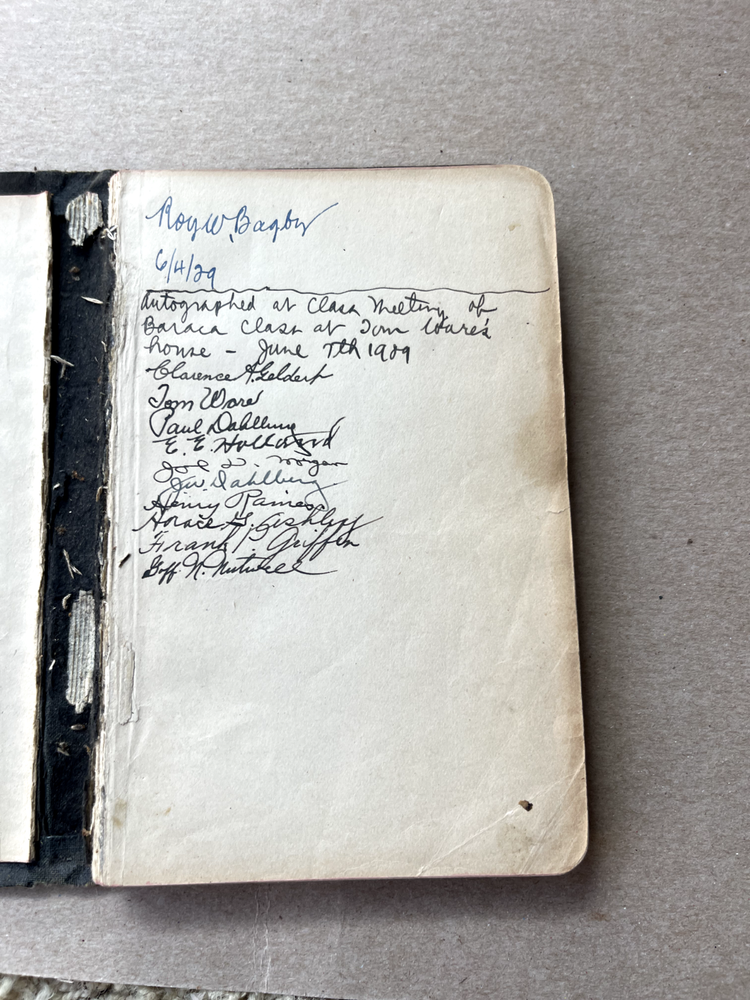 Roy W. Bagby
6/4/29
Autographed at Class Meeting of
Baraca Class at Tom Ware's
house - June 7th 1929
Clarence A. Geldert
Tom Ware
Paul Dahlberg
E. E.
Joel D. Morgan
Jw. Dahlberg
Henry Raines
Horace G. Ashley
Frank P. Griffin
Goff N. Nutwell